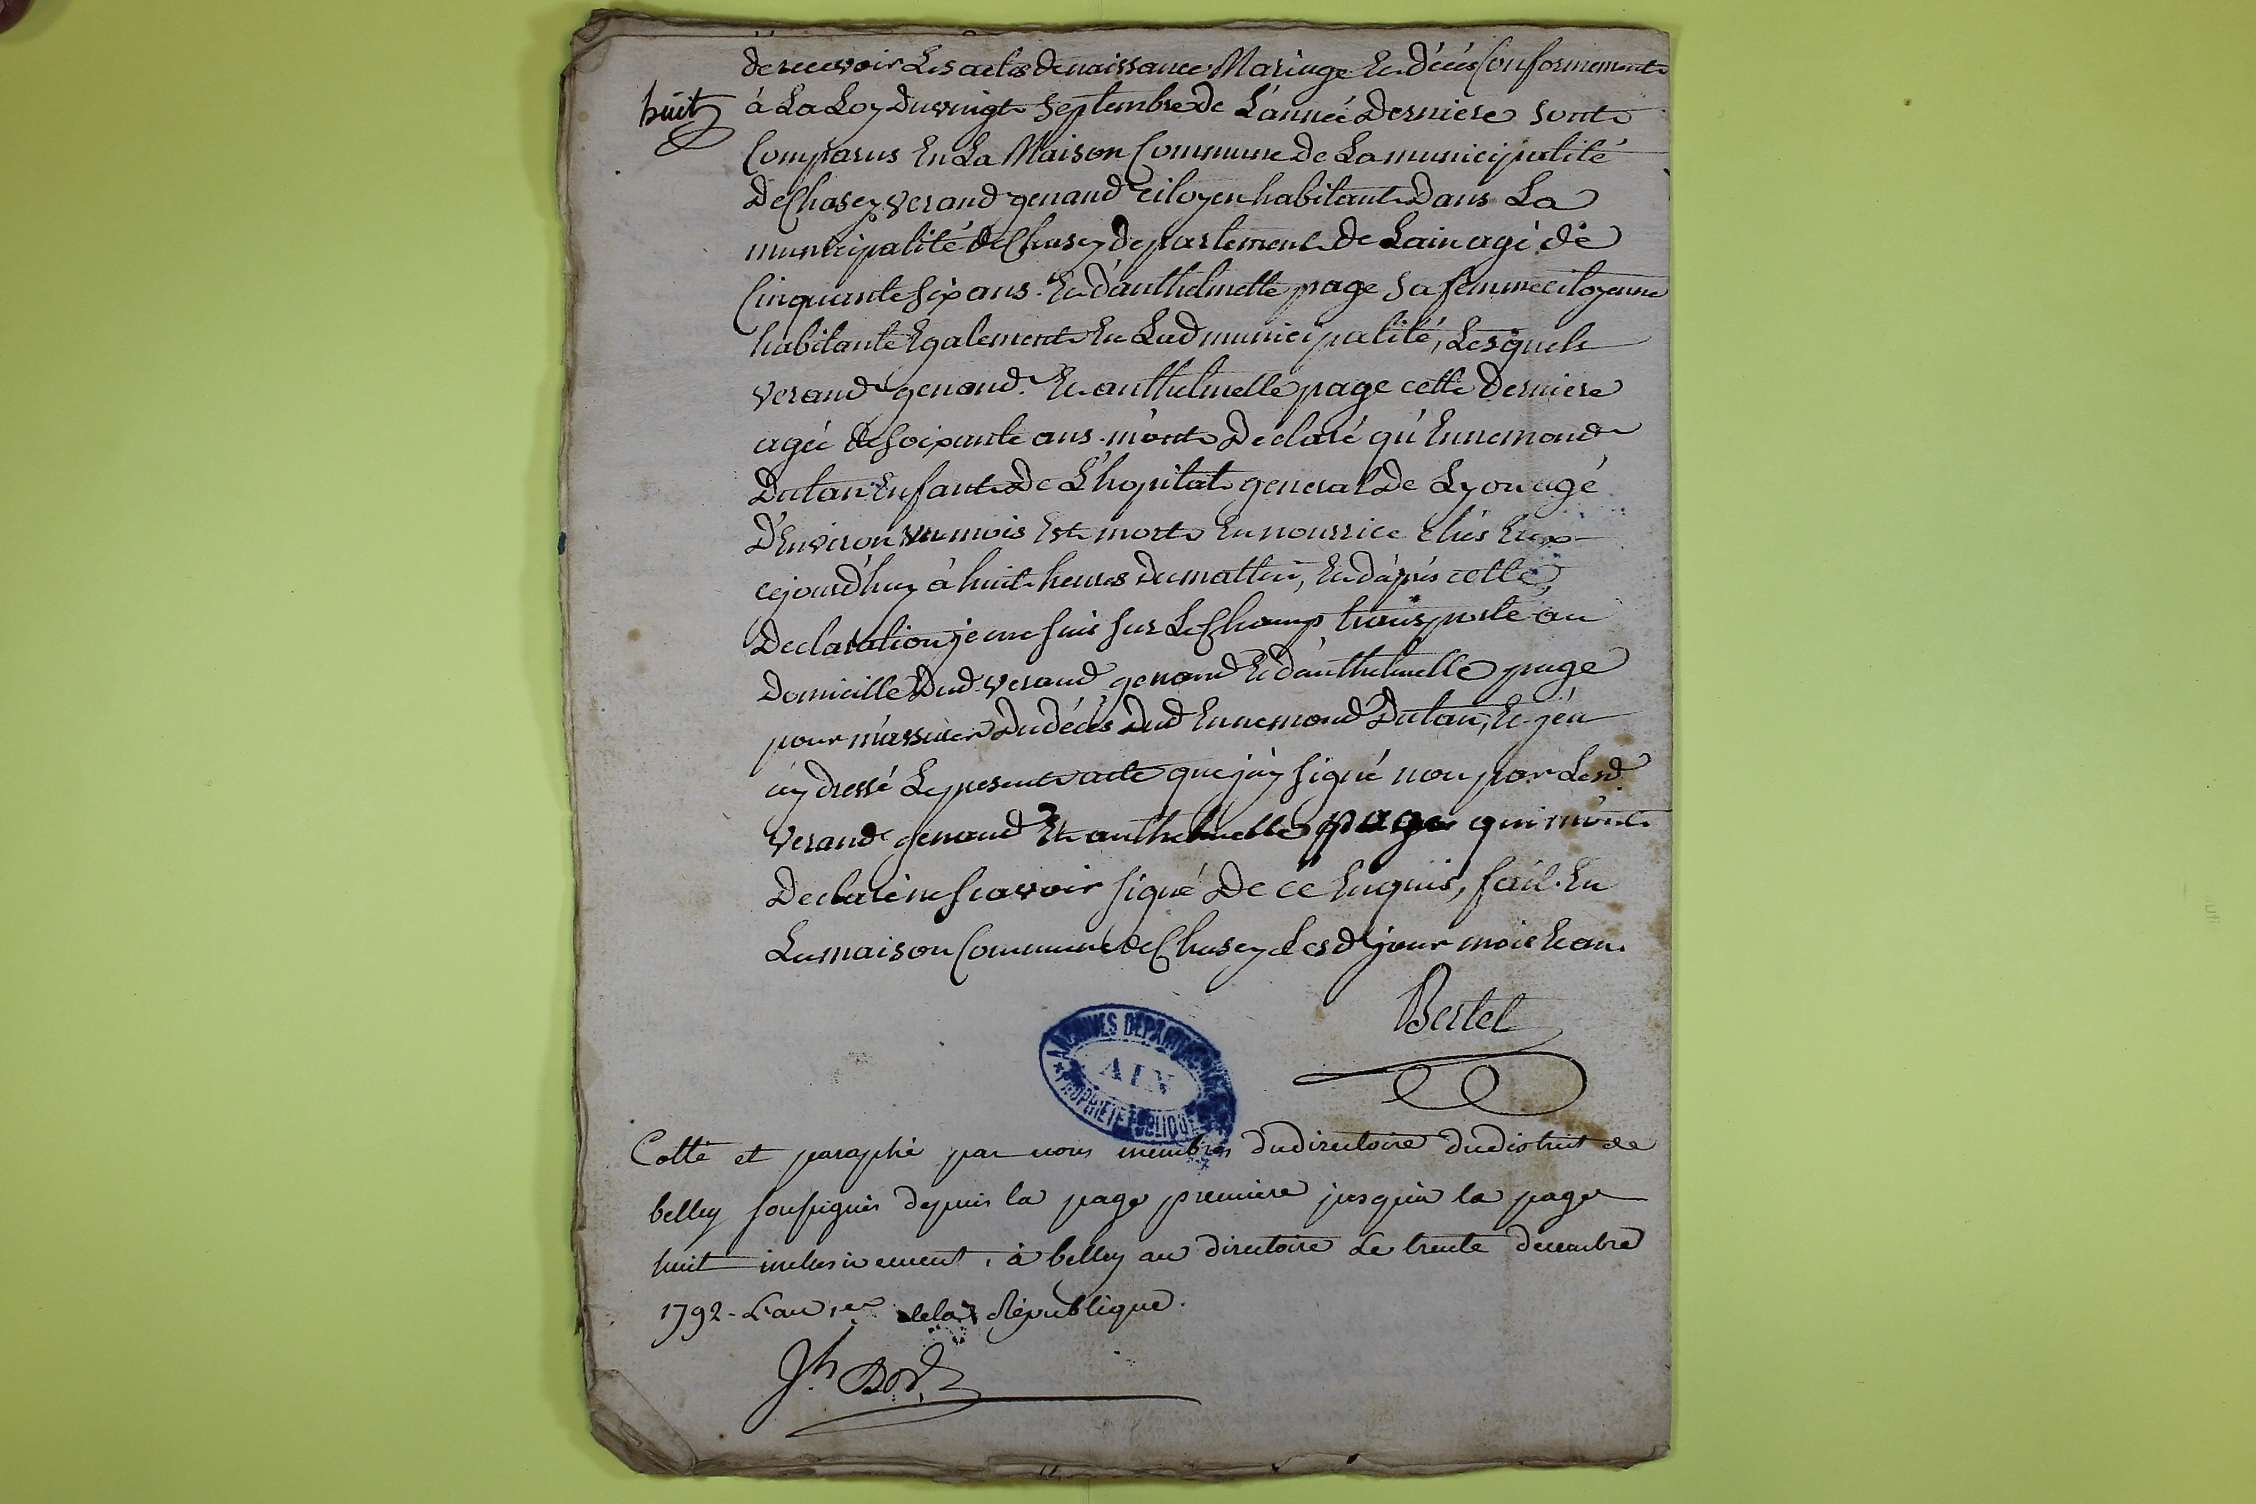 de recevoir Les actes de naissance Mariage Et décés Conformement
huit
à La Loy du vingt Septembre de L'année Derniere sont
Comparus En La Maison Commune de La municipalité
De Chasey verand genand citoyen habitant Dans La
municipalité de Chasey departement de Lain agé de
Cinquante Six ans. Et d'anthelmette page sa femme citoyenne
habitante Egalement En Lad municipalité, Lesquels
verand genand. Et anthelmette page cette derniere
agée de soixante ans. m'ont Declaré qu'Ennemond
Dutan Enfant de L'hopital general de Lyon agé
D'Environ un mois Est mort En nourrice chés Eux
cejourd'huy à huit heures du mattin, Et d'aprés cette
Declaration je me suis sur Le Champ transporté au
Domicille Dud. verand genand Et d'anthelmette page
pour m'assurer Du décés Dud Ennemond Dutan, Et j'en
ay dressé Le present acte que j'ay signé non par Lesd
Verand genand Et anthelmette page qui m'ont
Declaré ne scavoir signé De ce Enquis, fait En
La maison Commune de Chasey Lesd jour mois Et an.
Bertet
ARCHIVES DEPARTEMENTALES
AIN
PROPRIÉTÉ PUBLIQUE
Cotté et paraphé par nous membres du directoire du district de
belley soussignés depuis la page premiere jusqu'a la page
huit inclusivement, à belley au directoire le trente decembre
1792. L'an 1er de la République.